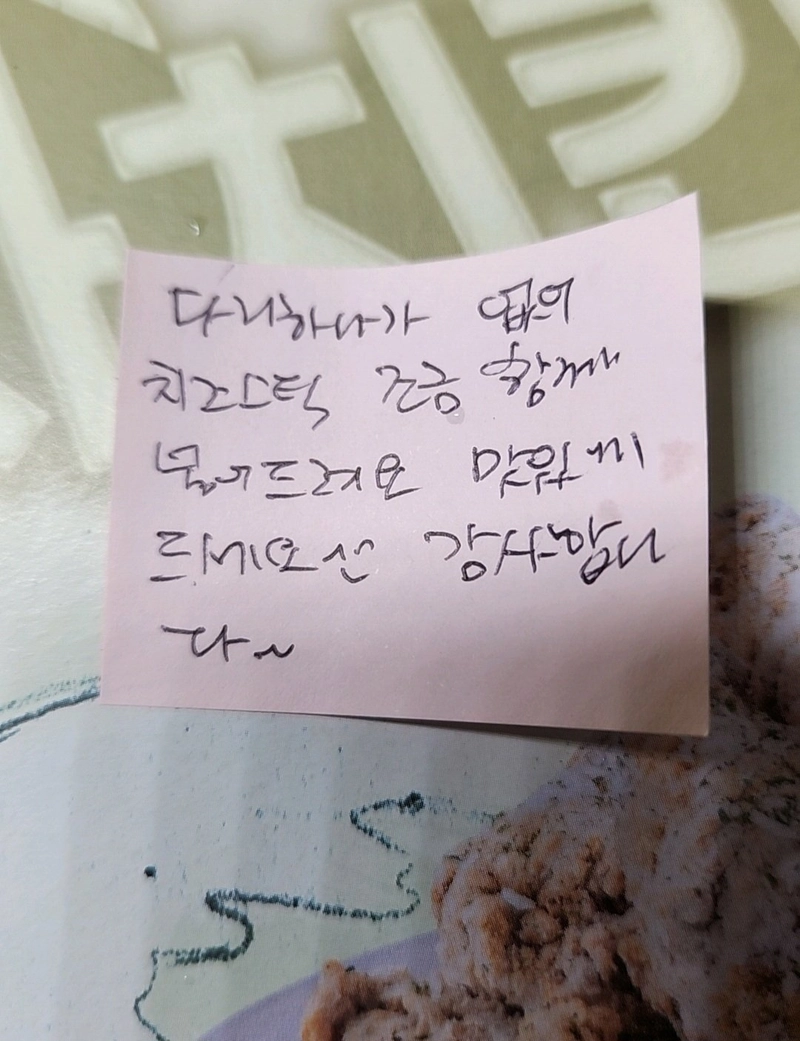 치킨
다리하나가 없의
치즈스틱 조금 함께
넣어드려요 맛있게
드세요신 감사합니
다~